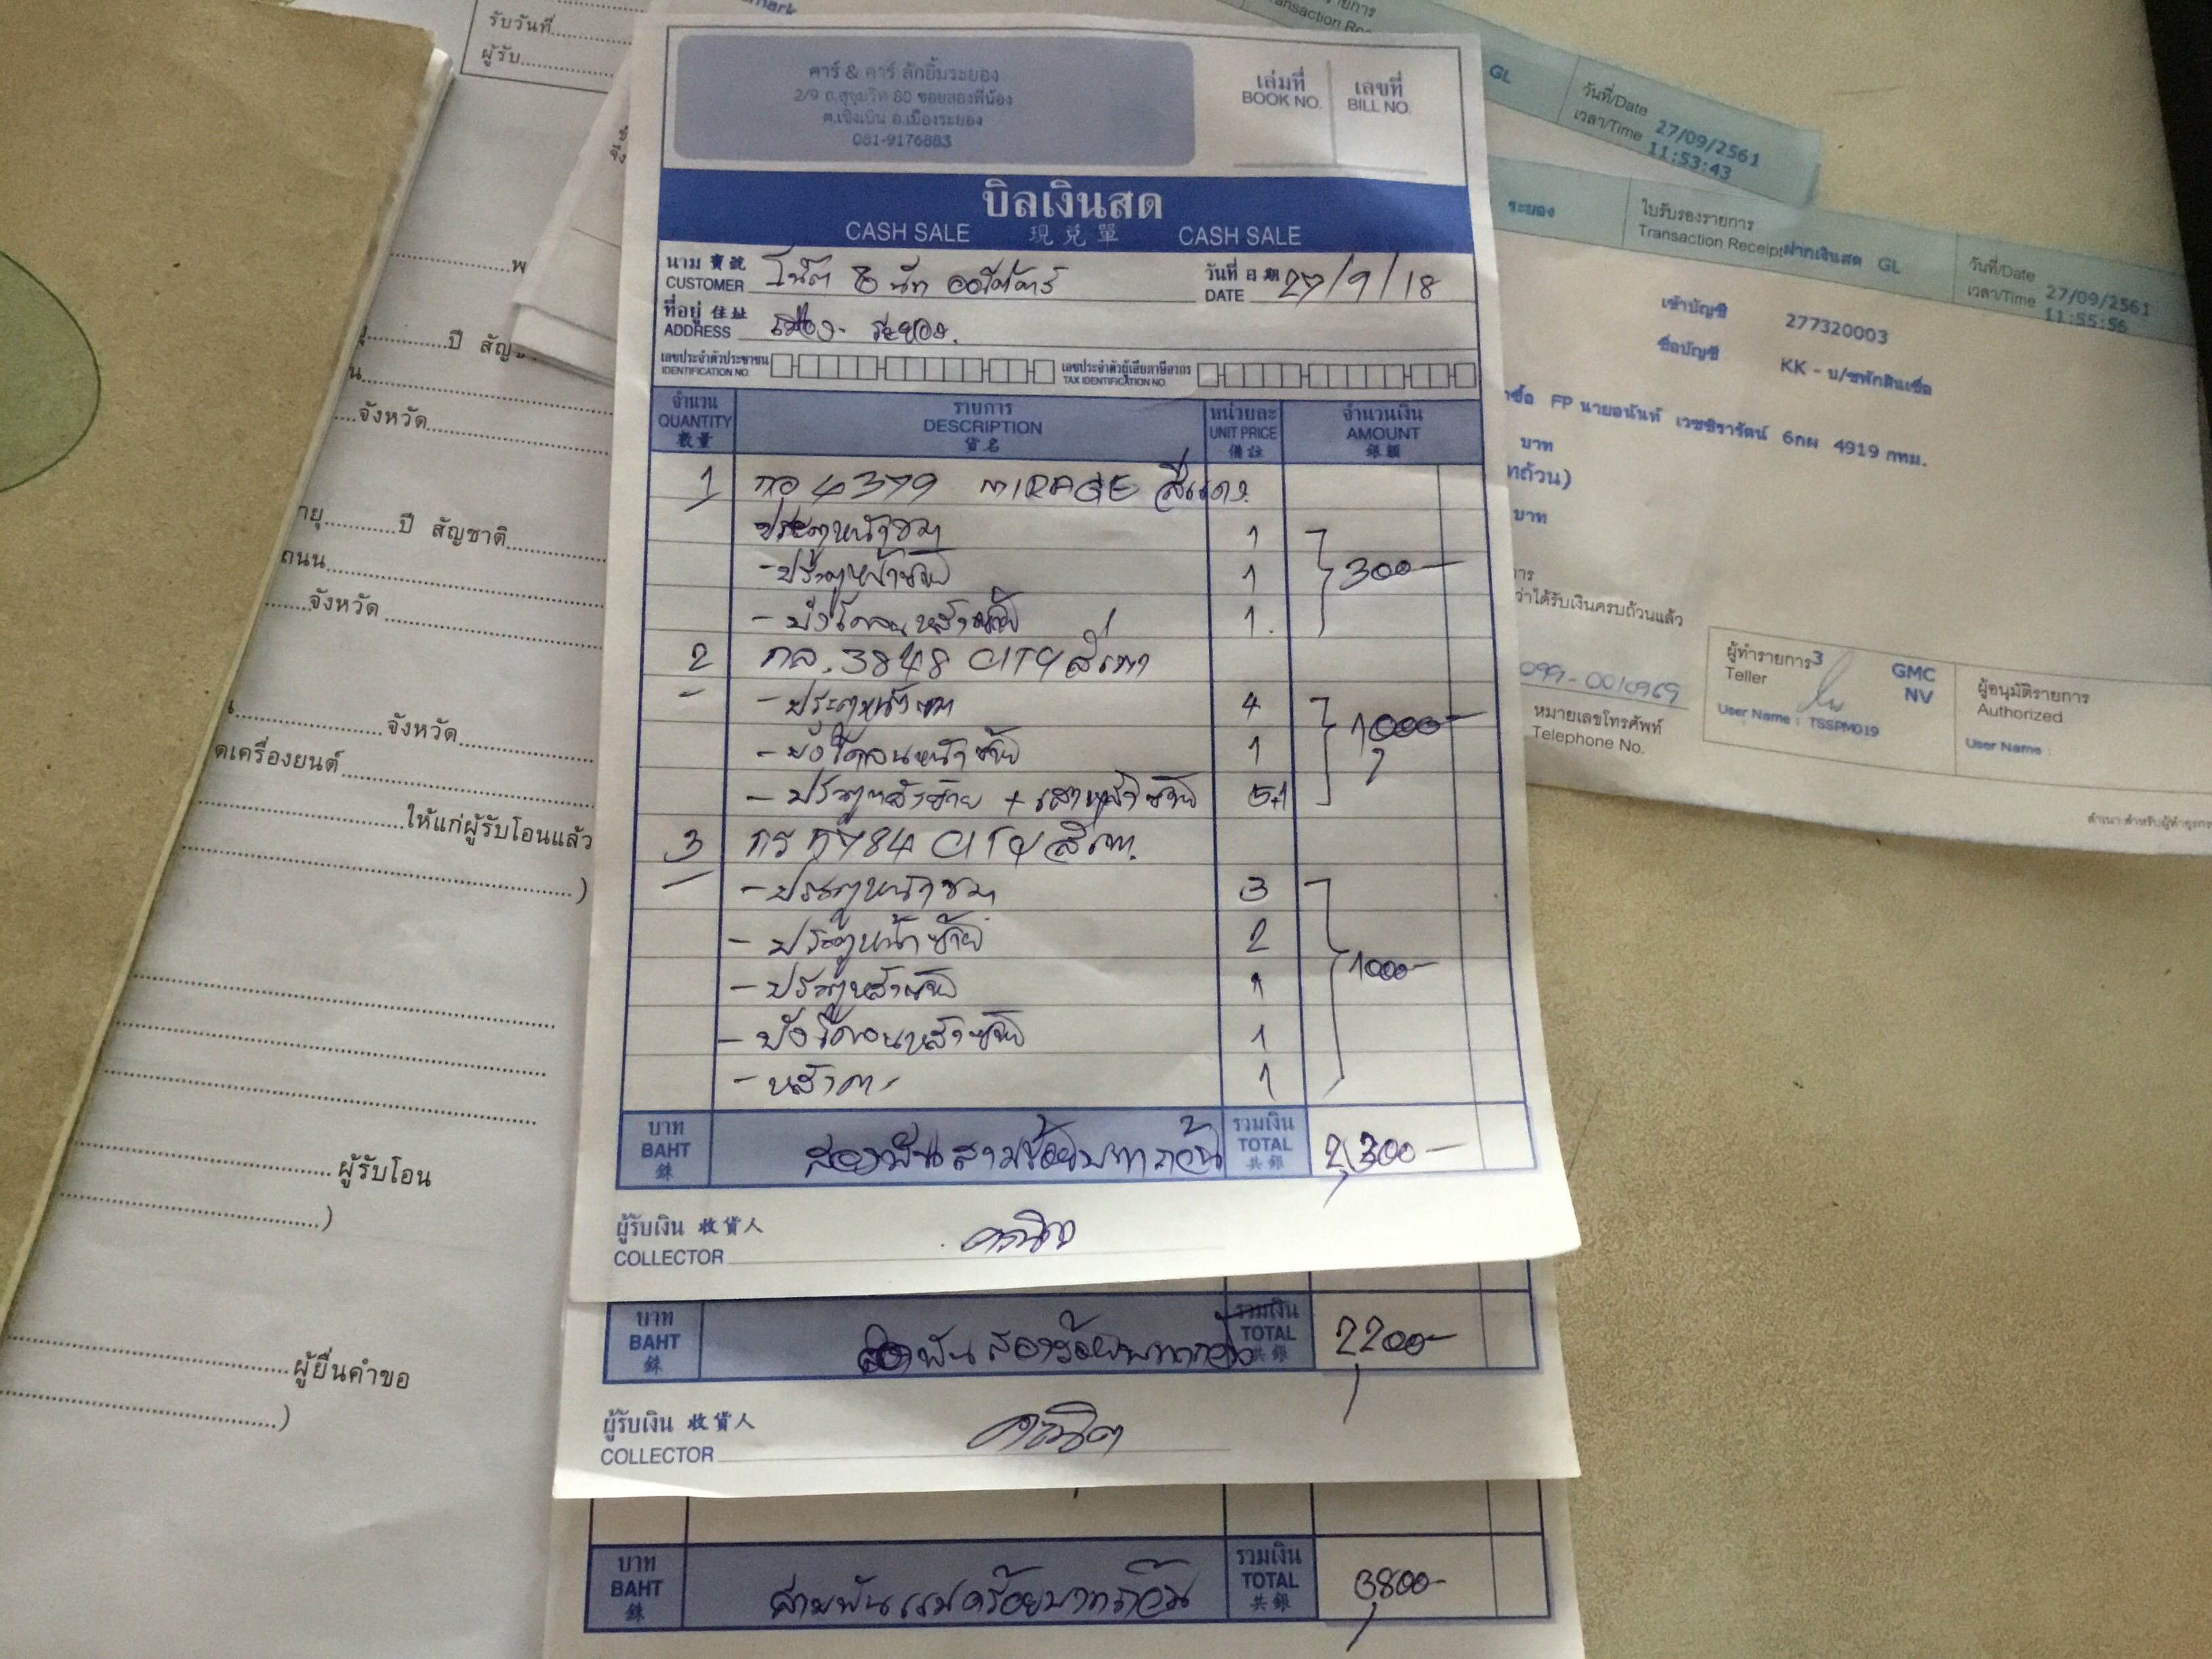 รับวันที่
ผู้รับ
คาร์ & คาร์ ลักยิ้มระยอง
2/9 ถ.สุขุมวิท 80 ซอยสองพี่น้อง
ต.เชิงเนิน อ.เมืองระยอง
081-9176883
เล่มที่ เลขที่
BOOK NO. BILL NO.
บิลเงินสด
CASH SALE 現兌單 CASH SALE
นาม 寶號
CUSTOMER
วันที่ 日期
DATE 27/9/18
ที่อยู่ 住址
ADDRESS เมือง - ระยอง.
เลขประจำตัวประชาชน
IDENTIFICATION NO.
เลขประจำตัวผู้เสียภาษีอากร
TAX IDENTIFICATION NO.
จำนวน รายการ หน่วยละ จำนวนเงิน
QUANTITY DESCRIPTION UNIT PRICE AMOUNT
數量 貨名 備註 銀額
1 กอ 4379 MIRAGE สีแดง
ประตูหน้าขวา 1
- ประตูหน้าซ้าย 1 300-
- บังโคลนหลังซ้าย 1.
2 กล. 3848 CITY สีเทา
- ประตูหน้าขวา 4
- บังโคลนหน้าซ้าย 1 1,000-
- ประตูหลังซ้าย + เสาหลังซ้าย 5+1
3 CITY สีเทา
- ประตูหน้าขวา 3
- ประตูหน้าซ้าย 2
- ประตูหลังซ้าย 1 1000-
- บังโคลนหลังซ้าย 1
- หลังคา 1
บาท รวมเงิน
BAHT สองพันสามร้อยบาทถ้วน TOTAL 2,300-
銖 共銀
ผู้รับเงิน 收貨人
COLLECTOR
บาท รวมเงิน
BAHT สองพันสองร้อยบาทถ้วน TOTAL 2,200-
銖 共銀
ผู้รับเงิน 收貨人
COLLECTOR
บาท รวมเงิน
BAHT สามพันแปดร้อยบาทถ้วน TOTAL 3,800-
銖 共銀
ปี
จังหวัด
ปี สัญชาติ
ถนน
จังหวัด
จังหวัด
ให้แก่ผู้รับโอนแล้ว
)
ผู้รับโอน
)
ผู้ยื่นคำขอ
)
GL
วันที่/Date 27/09/2561
เวลา/Time 11:53:43
ระยอง
ใบรับรองรายการ
Transaction Receipt ฝากเงินสด GL
วันที่/Date 27/09/2561
เวลา/Time 11:55:56
เข้าบัญชี 277320003
ชื่อบัญชี KK - บ/ชพักสินเชื่อ
FP นายอนันท์ เวชชิรารัตน์ 6กผ 4919 กทม.
บาท
บาท
ว่าได้รับเงินครบถ้วนแล้ว
หมายเลขโทรศัพท์
Telephone No.
ผู้ทำรายการ 3 GMC
Teller NV
User Name : TSSPM019
ผู้อนุมัติรายการ
Authorized
User Name :